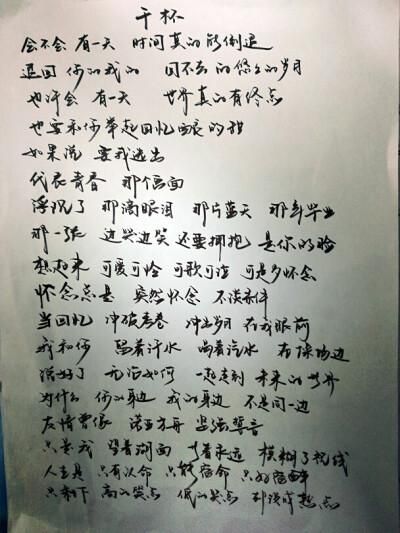 干杯
会不会 有一天 时间真的能倒退
退回 你的我的 回不去的 悠悠的岁月
也许会 有一天 世界真的有终点
也要和你举起回忆酿的甜
如果说 要我选出
代表青春 那个画面
浮现了 那滴眼泪 那片蓝天 那年毕业
那一张 边哭边笑 还要拥抱 是你的脸
想起来 可爱可怜 可歌可泣 可是多怀念
怀念总是 突然怀念 不谈条件
当回忆 冲破考卷 冲出岁月 在我眼前
我和你 流着汗水 喝着汽水 在操场边
说好了 无论如何 一起走到 未来的世界
为什么 你的身边 我的身边 不是同一边
友情曾像 诺亚方舟 坚强誓言
只是我 望着湖面 等着永远 模糊了视线
人生是 只有认命 只能宿命 只好宿醉
只剩下 高的笑点 低的哭点 却没成熟点